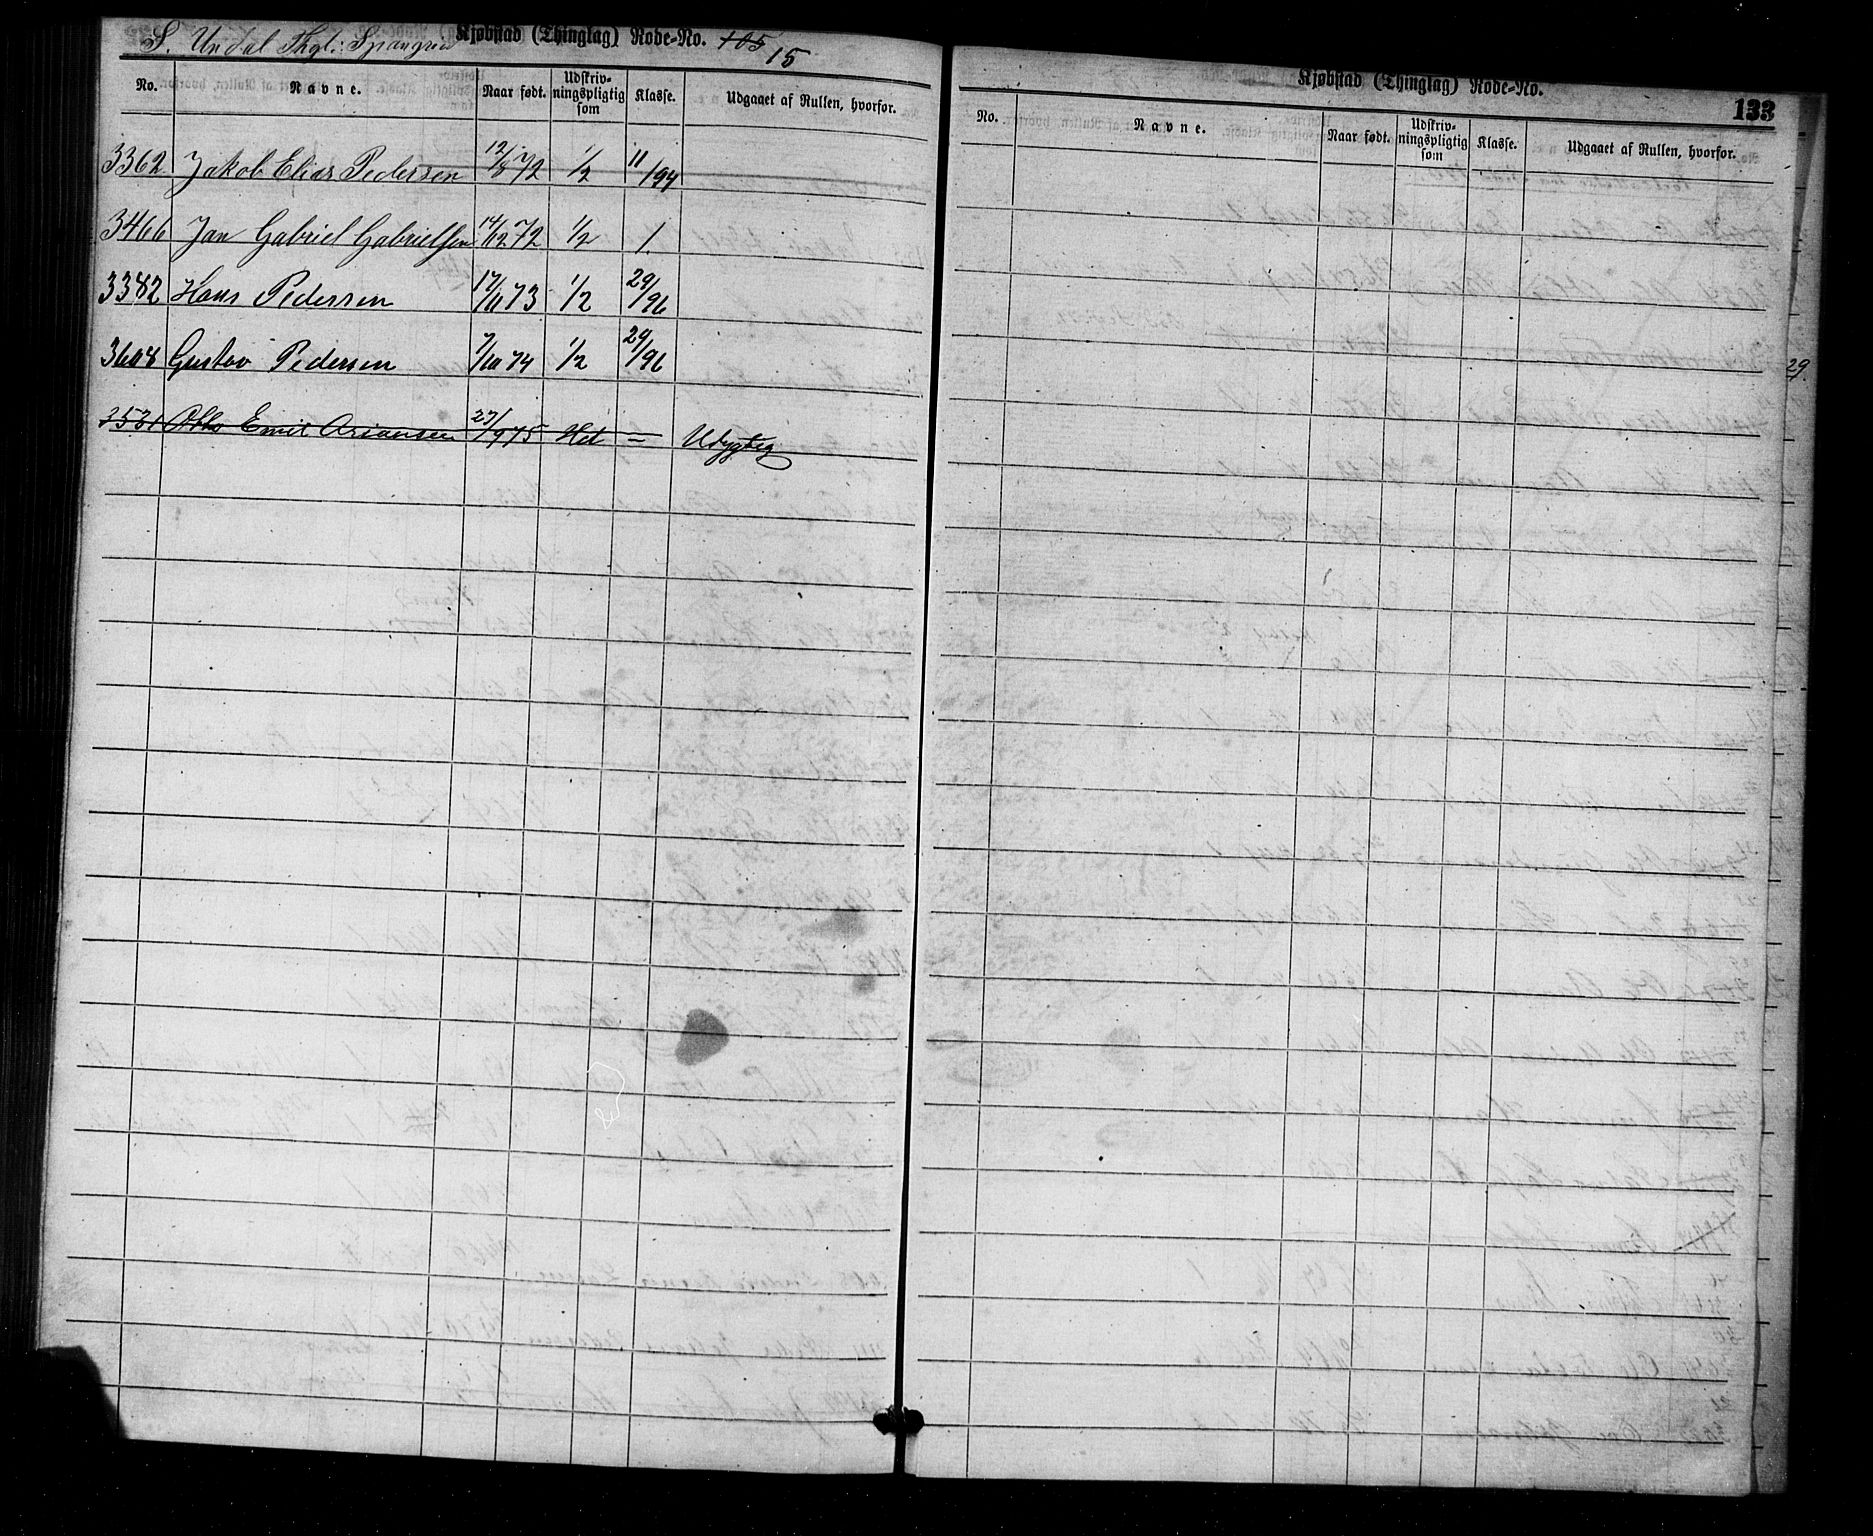 S. Undal Thgl: Spangrei Kjøbstad (Thinglag) Rode-No. 105 15
No. Navne. Naar født. Udskriv-ningspligtig som Klasse. Udgaaet af Rullen, hvorfor.
3362 Jakob Elias Pedersen 12/8 72 1/2 11/94
3466 Jan Gabriel Gabrielsen 14/12 72 1/2 1
3382 Hans Pedersen 17/11 73 1/2 29/96
3608 Gustav Pedersen 7/10 74 1/2 29/96
3531 Otto Emil Ariansen 27/9 75 Hd — Udygtig
Kjøbstad (Thinglag) Rode-No.
133
No. Navne. Naar født. Udskriv-ningspligtig som Klasse. Udgaaet af Rullen, hvorfor.
29.